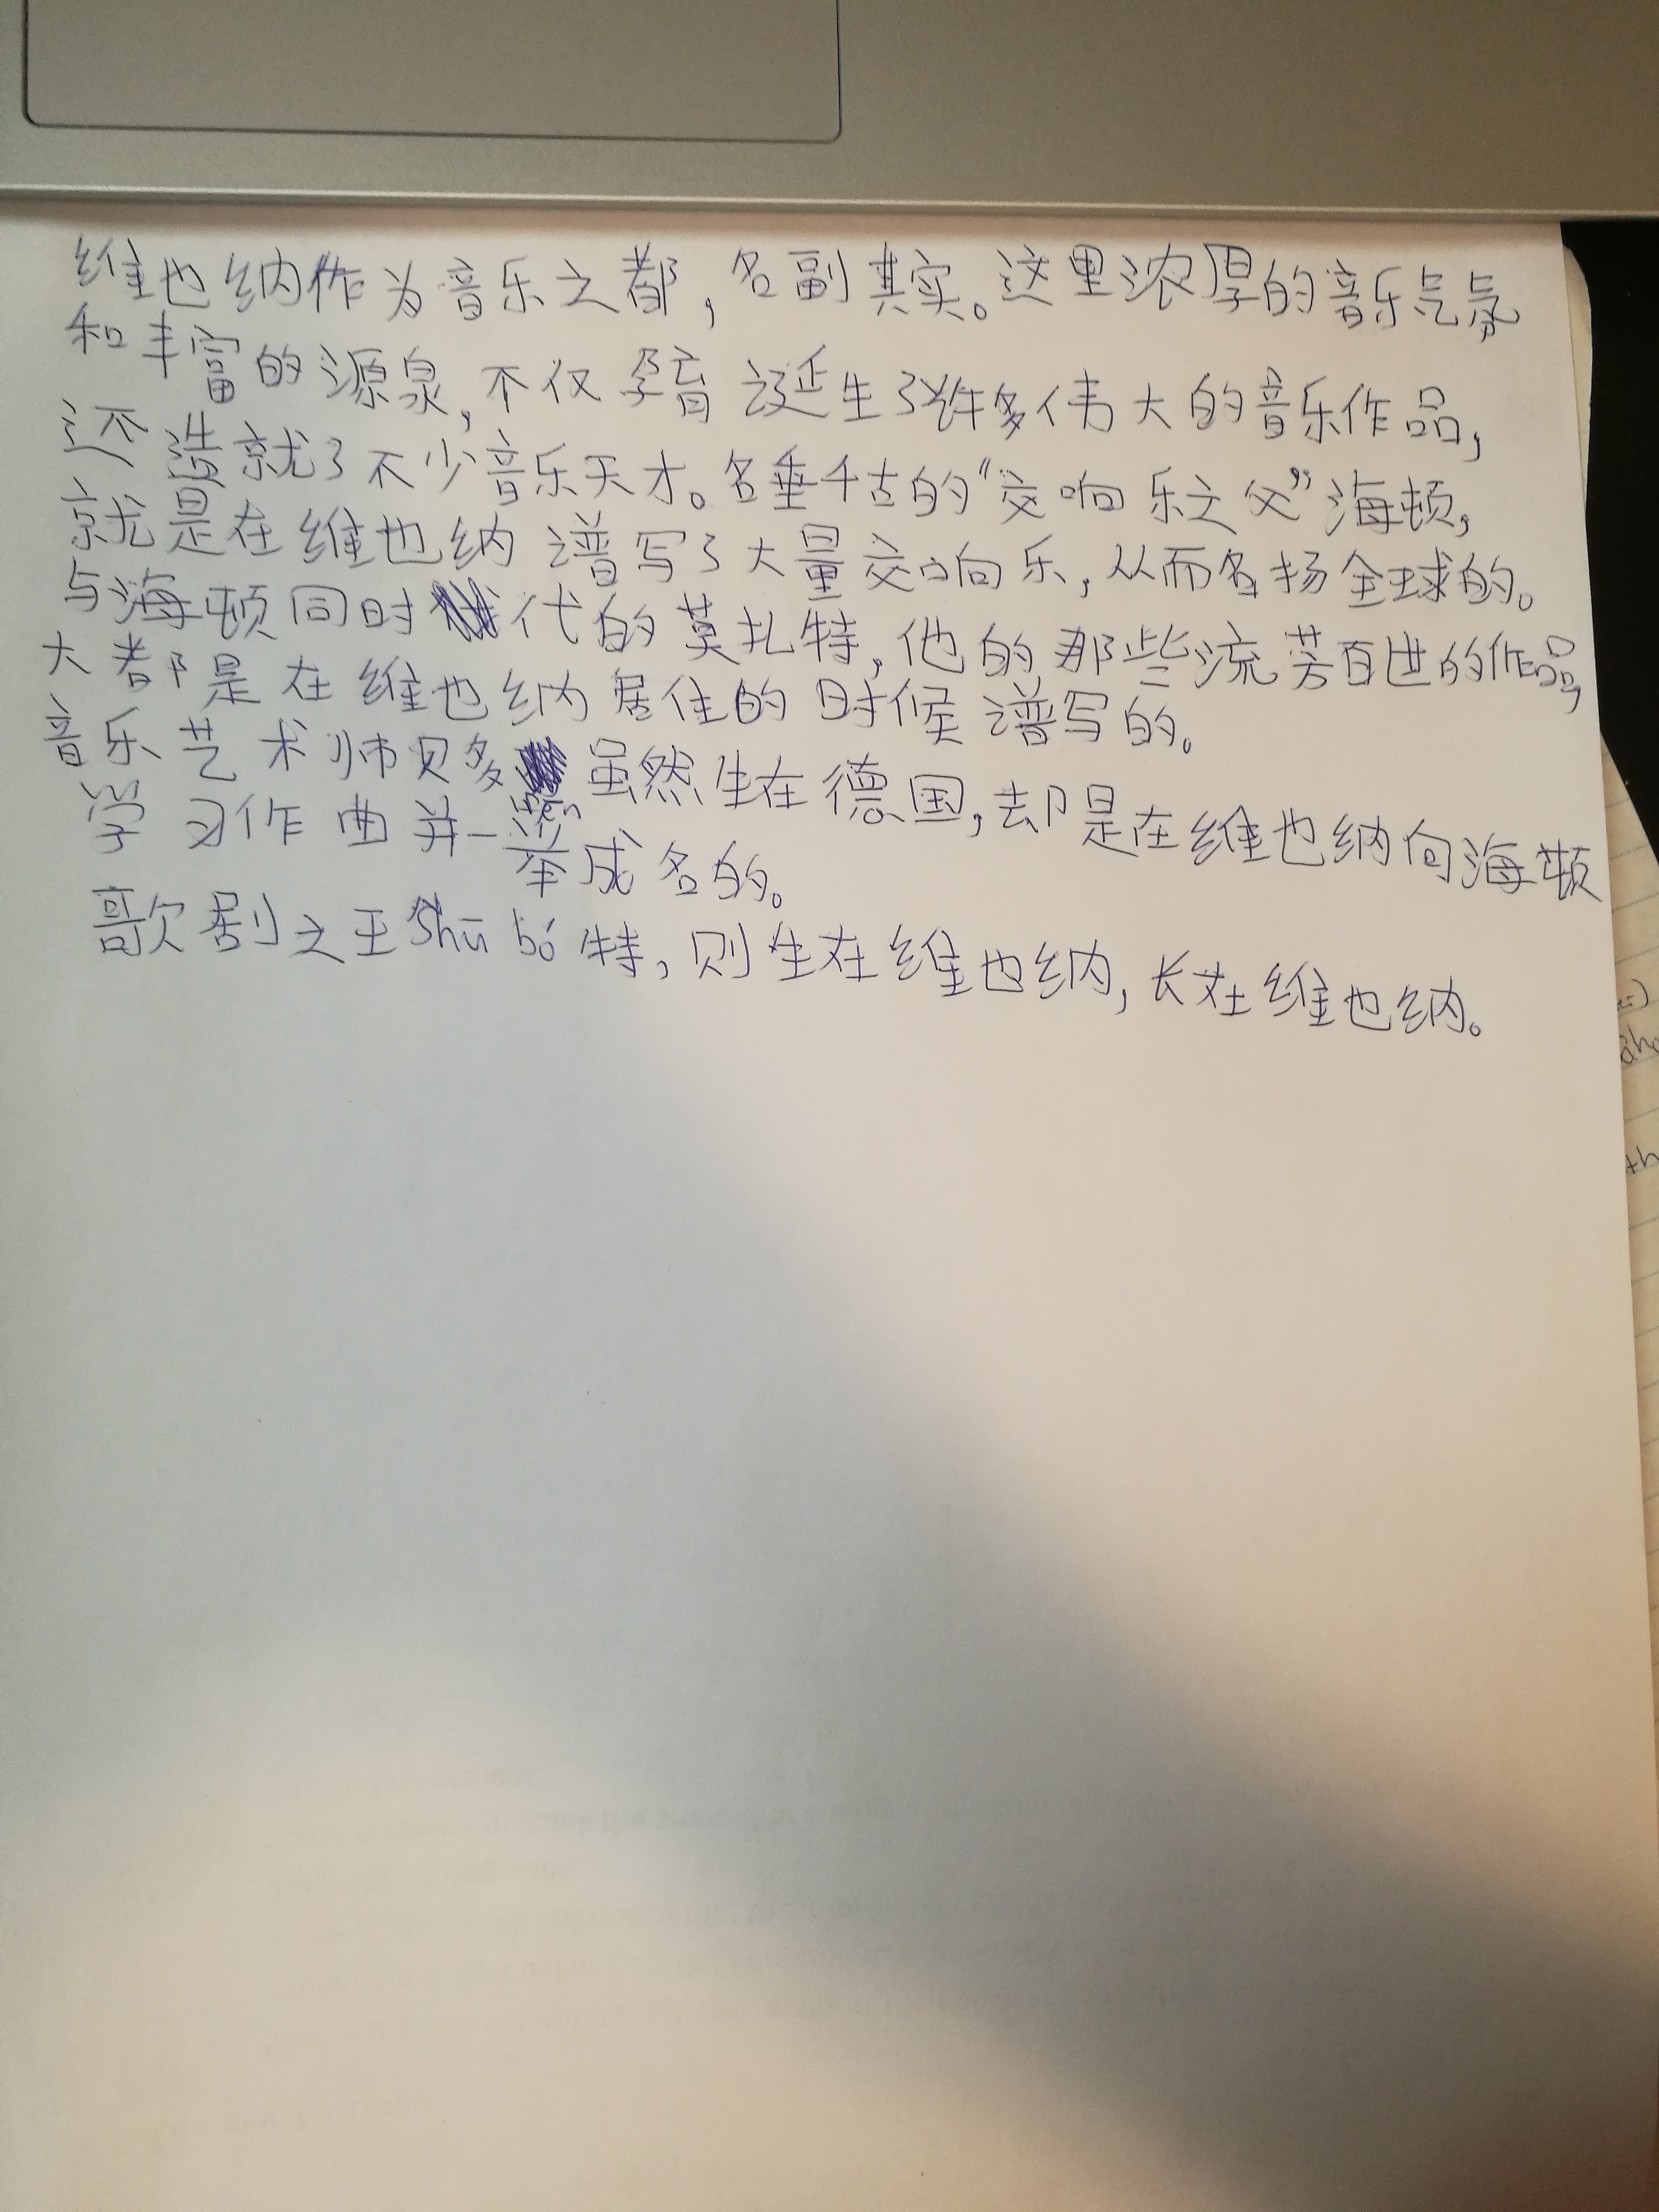 维也纳作为音乐之都，名副其实。这里浓厚的音乐气氛
和丰富的源泉，不仅孕育诞生了许多伟大的音乐作品，
还造就了不少音乐天才。名垂千古的“交响乐之父”海顿，
就是在维也纳谱写了大量交响乐，从而名扬全球的。
与海顿同时代的莫扎特，他的那些流芳百世的作品，
大都是在维也纳居住的时候谱写的。
音乐艺术师贝多fēn虽然生在德国，却是在维也纳向海顿
学习作曲并一举成名的。
歌剧之王Shū bó特，则生在维也纳，长在维也纳。